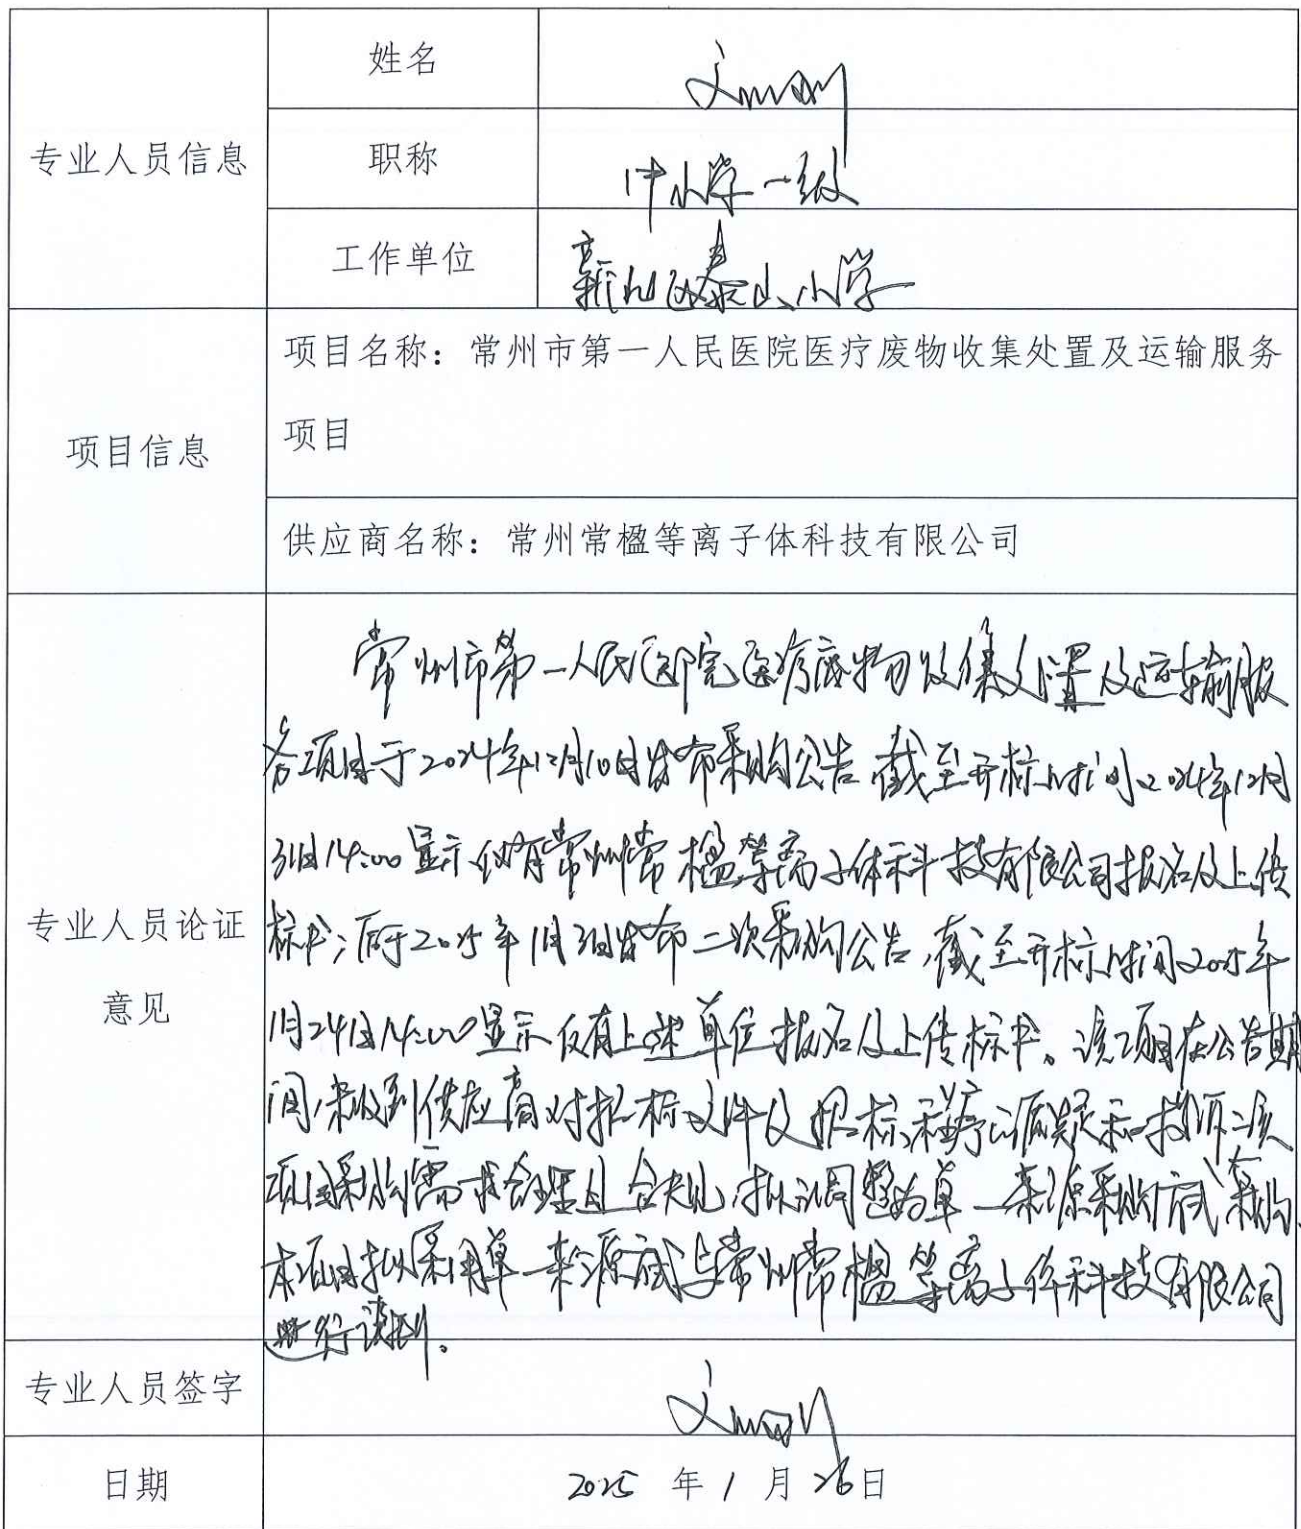 姓名
专业人员信息
职称
中小学一级
工作单位
新北区泰山小学
项目信息
项目名称：常州市第一人民医院医疗废物收集处置及运输服务
项目
供应商名称：常州常楹等离子体科技有限公司
专业人员论证
意见
常州市第一人民医院医疗废物收集处置及运输服
务项目于2024年12月10日发布采购公告，截至开标时间2024年12月
31日14:00显示仅有常州常楹等离子体科技有限公司报名及上传
标书；后于2025年1月3日发布二次采购公告，截至开标时间2025年
1月24日14:00显示仅有上述单位报名及上传标书。该项目在公告期
间，未收到供应商对招标文件及招标程序质疑和投诉，该
项目采购需求合理且合规，拟调整为单一来源采购方式采购，
本项目拟采用单一来源方式与常州常楹等离子体科技有限公司
进行谈判。
专业人员签字
日期
2025 年 1 月 26日